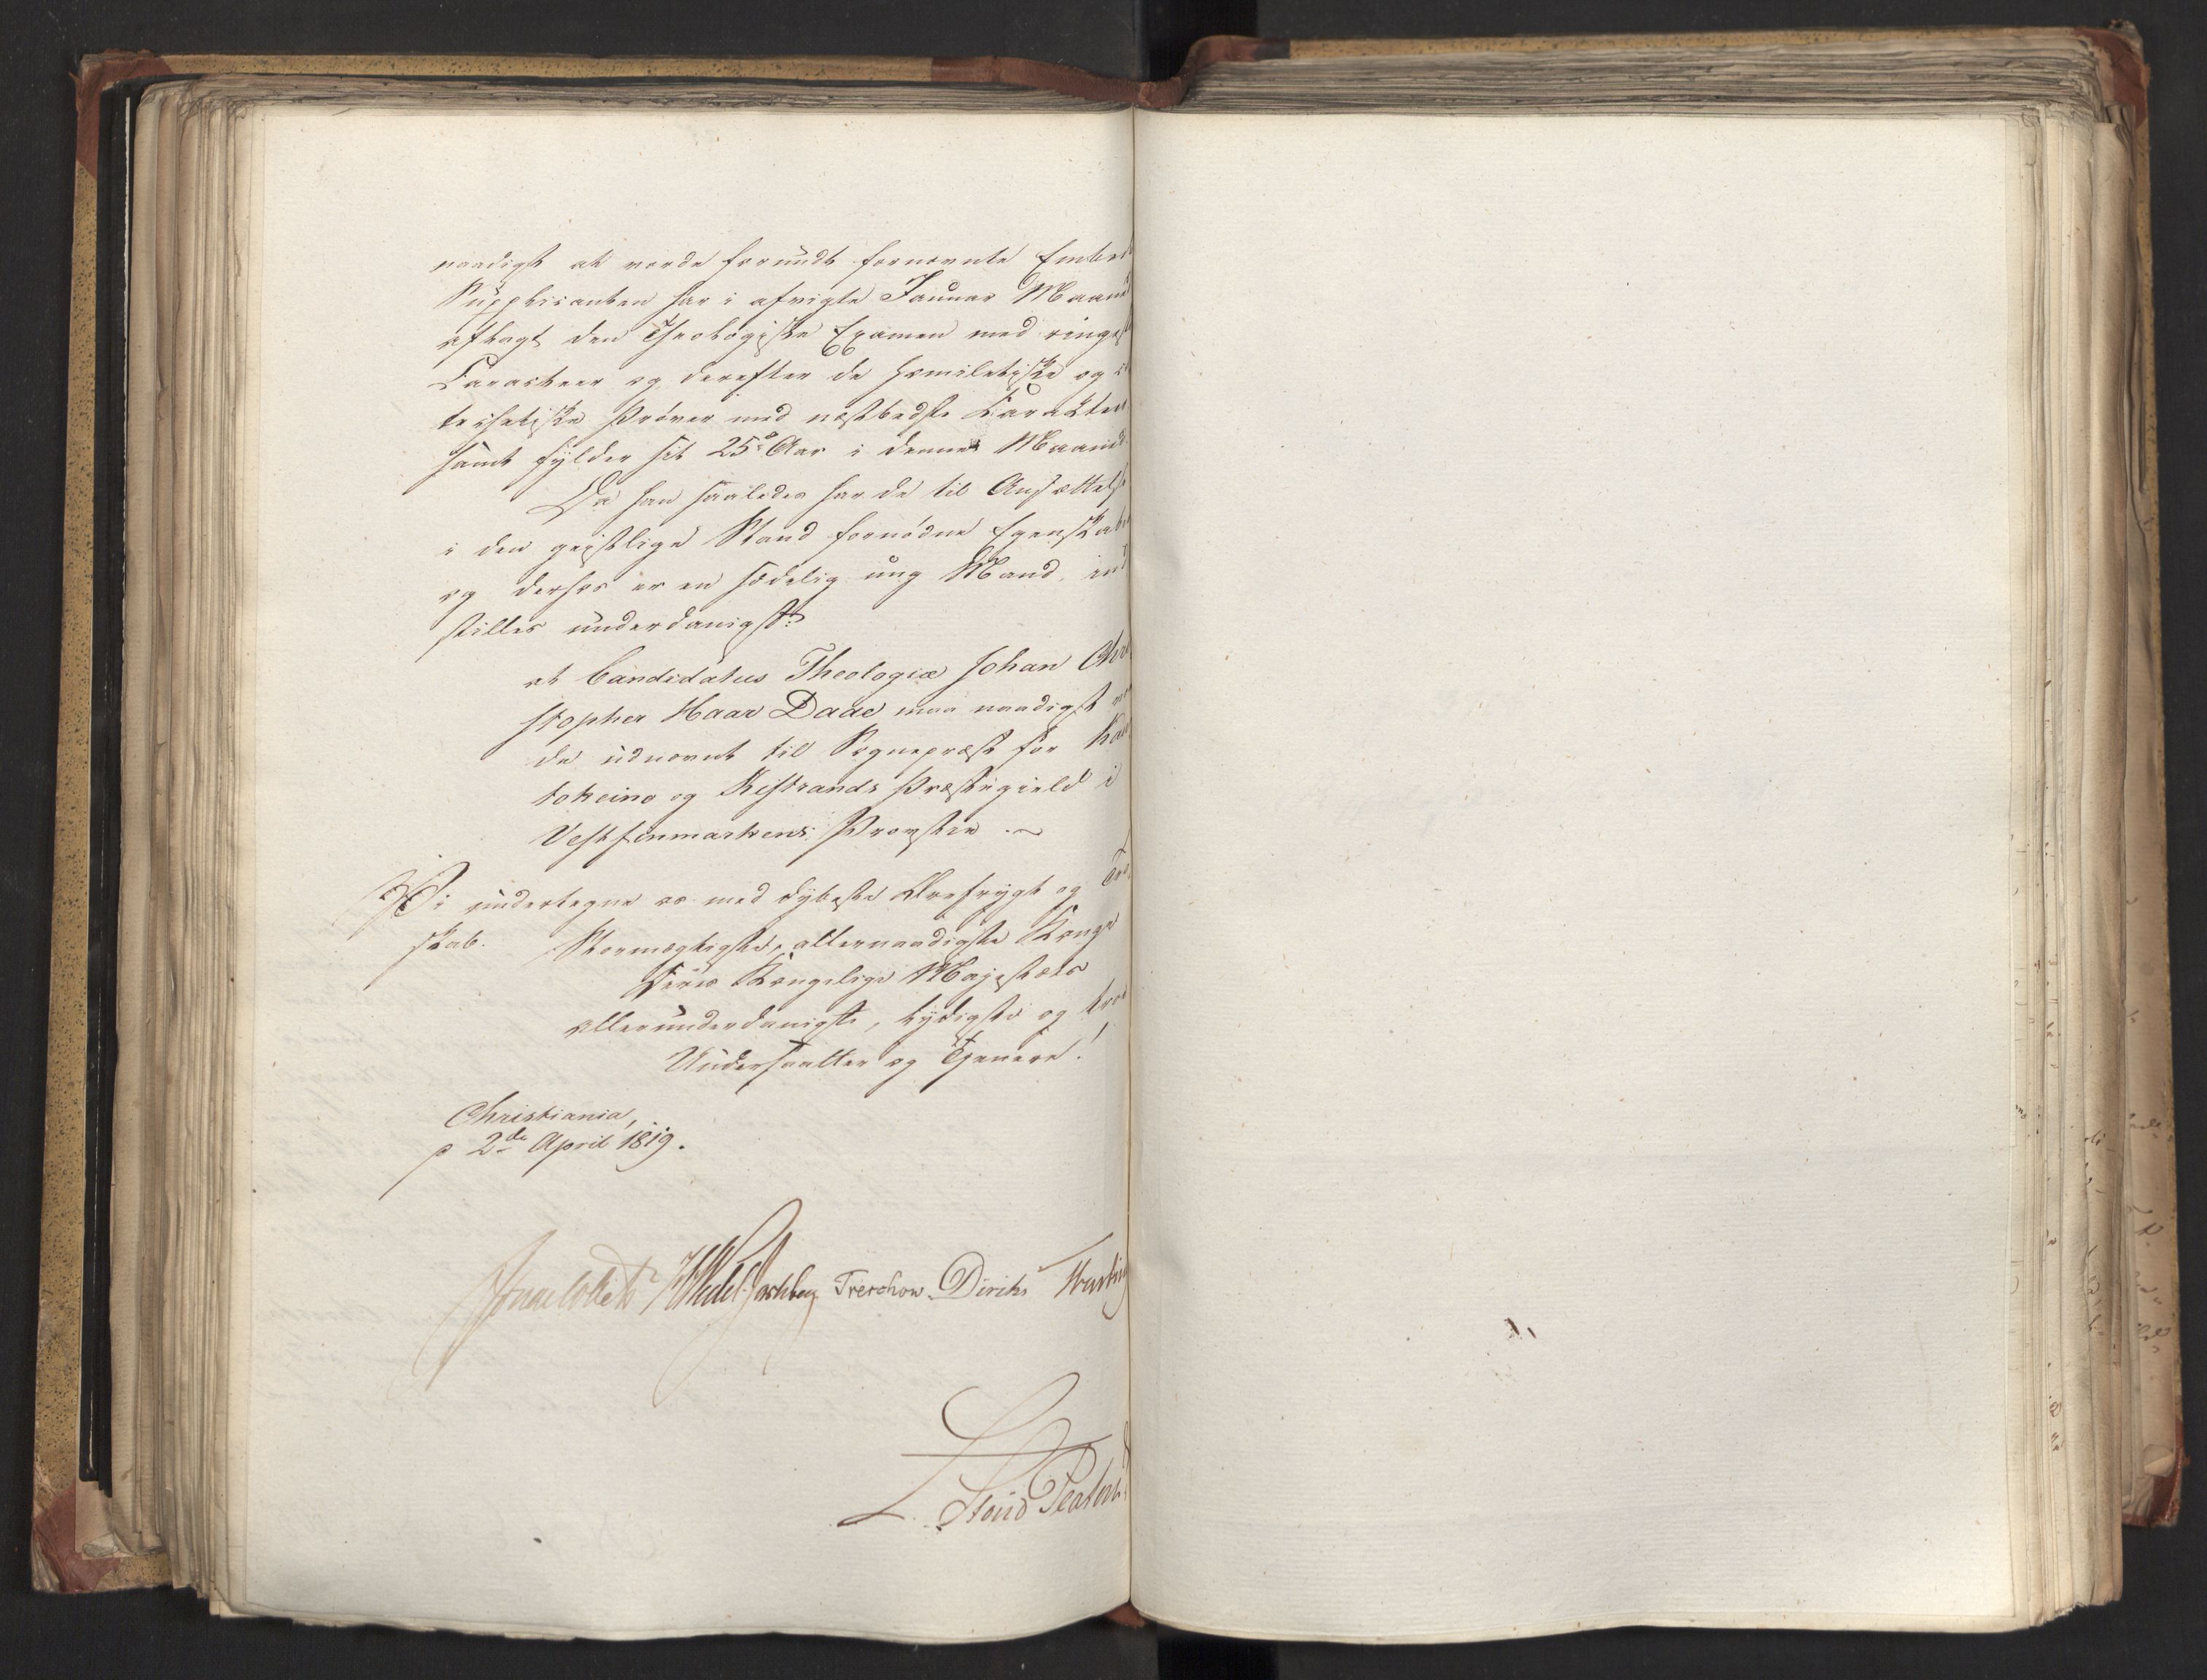 naadigst at vorde forundt fornævnte Embed
Supplicanten har i afvigte Januar Maaned
aflagt den Theologiske Examen med ringest
Caracteer og derefter de homiletiske og
techetiske Prøver med næstbedste Karakter
samt fylder sit 25de Aar i denne Maaned.
Da han saaledes har de til Ansættelse
i den geistlige Stand fornødne Egenskaber
og derhos er en sædelig ung Mand, ind
stilles underdanigst:
at Candidatus Theologiæ Johan Chri
stopher Haar Daae maa naadigst vor
de udnævnt til Sognepræst for Kau
tokeino og Kistrands Præstegield i
Vestfinmarkens Provstie.
Vi undertegne os med dybeste Ærefrygt og Tro
skab.
Stormægtigste, allernaadigste Konge
Deres Kongelige Majestæts
allerunderdanigste, lydigste og troe
Undersaatter og Tjenere!
Christiania,
d 2de April 1819.
Jonas Collett HWedel Jarlsberg Treschow Diriks Krebs
L. Stoud Platou